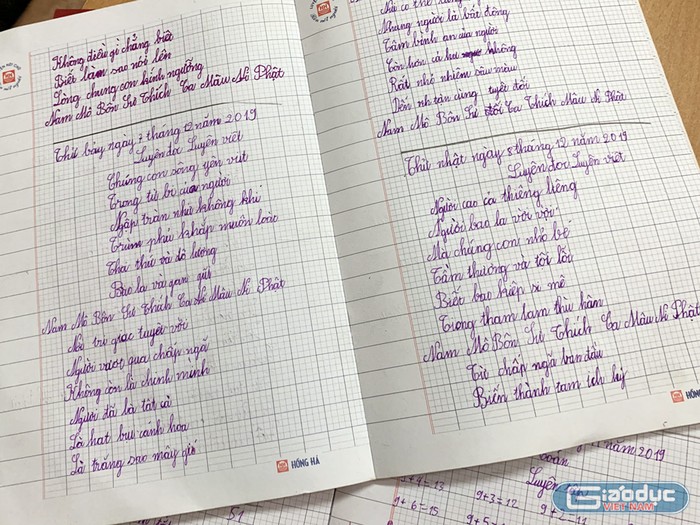 Không điều gì chẳng biết
Biết làm sao nói lên
Lòng chúng con kính ngưỡng
Nam Mô Bổn Sư Thích Ca Mâu Ni Phật
Thứ bảy ngày 7 tháng 12 năm 2019
Luyện đọc Luyện viết
Chúng con sống yên vui
Trong từ bi của người
Ngập tràn như không khí
Trùm phủ khắp muôn loài
Tha thứ và độ lượng
Bao la và gần gũi
Nam Mô Bổn Sư Thích Ca Ni Mâu Ni Phật
Nơi trí giác tuyệt vời
Người vượt qua chấp ngã
Không còn là chính mình
Người đã là tất cả
Là hạt bụi cánh hoa
Là trăng sao mây gió
HỒNG HÀ
Nếu có thể
Nhưng người là bất động
Tâm bình an của người
Rất nhỏ nhiệm sâu màu
Đến nh tận cùng tuyệt đối
Nam Mô Bổn Sư đối Ca Thích Mâu Ni Phật
Thứ nhật ngày 8 tháng 12 năm 2019
Luyện đọc Luyện viết
Người cao cả thiêng liêng
Người bao la vời vợi
Mà chúng con nhỏ bé
Tầm thường và tội lỗi
Biết bao kiếp si mê
Trong tham lam thù hận
Nam Mô Bổn Sư Thích Ca Mâu Ni Phật
Từ chấp ngã ban đầu
Biến thành tam ích kỷ
HỒNG
năm 2019
Toán
Luyện
9+4=13
9+6=15
9+3=12
51
Giáo dục
VIỆT NAM